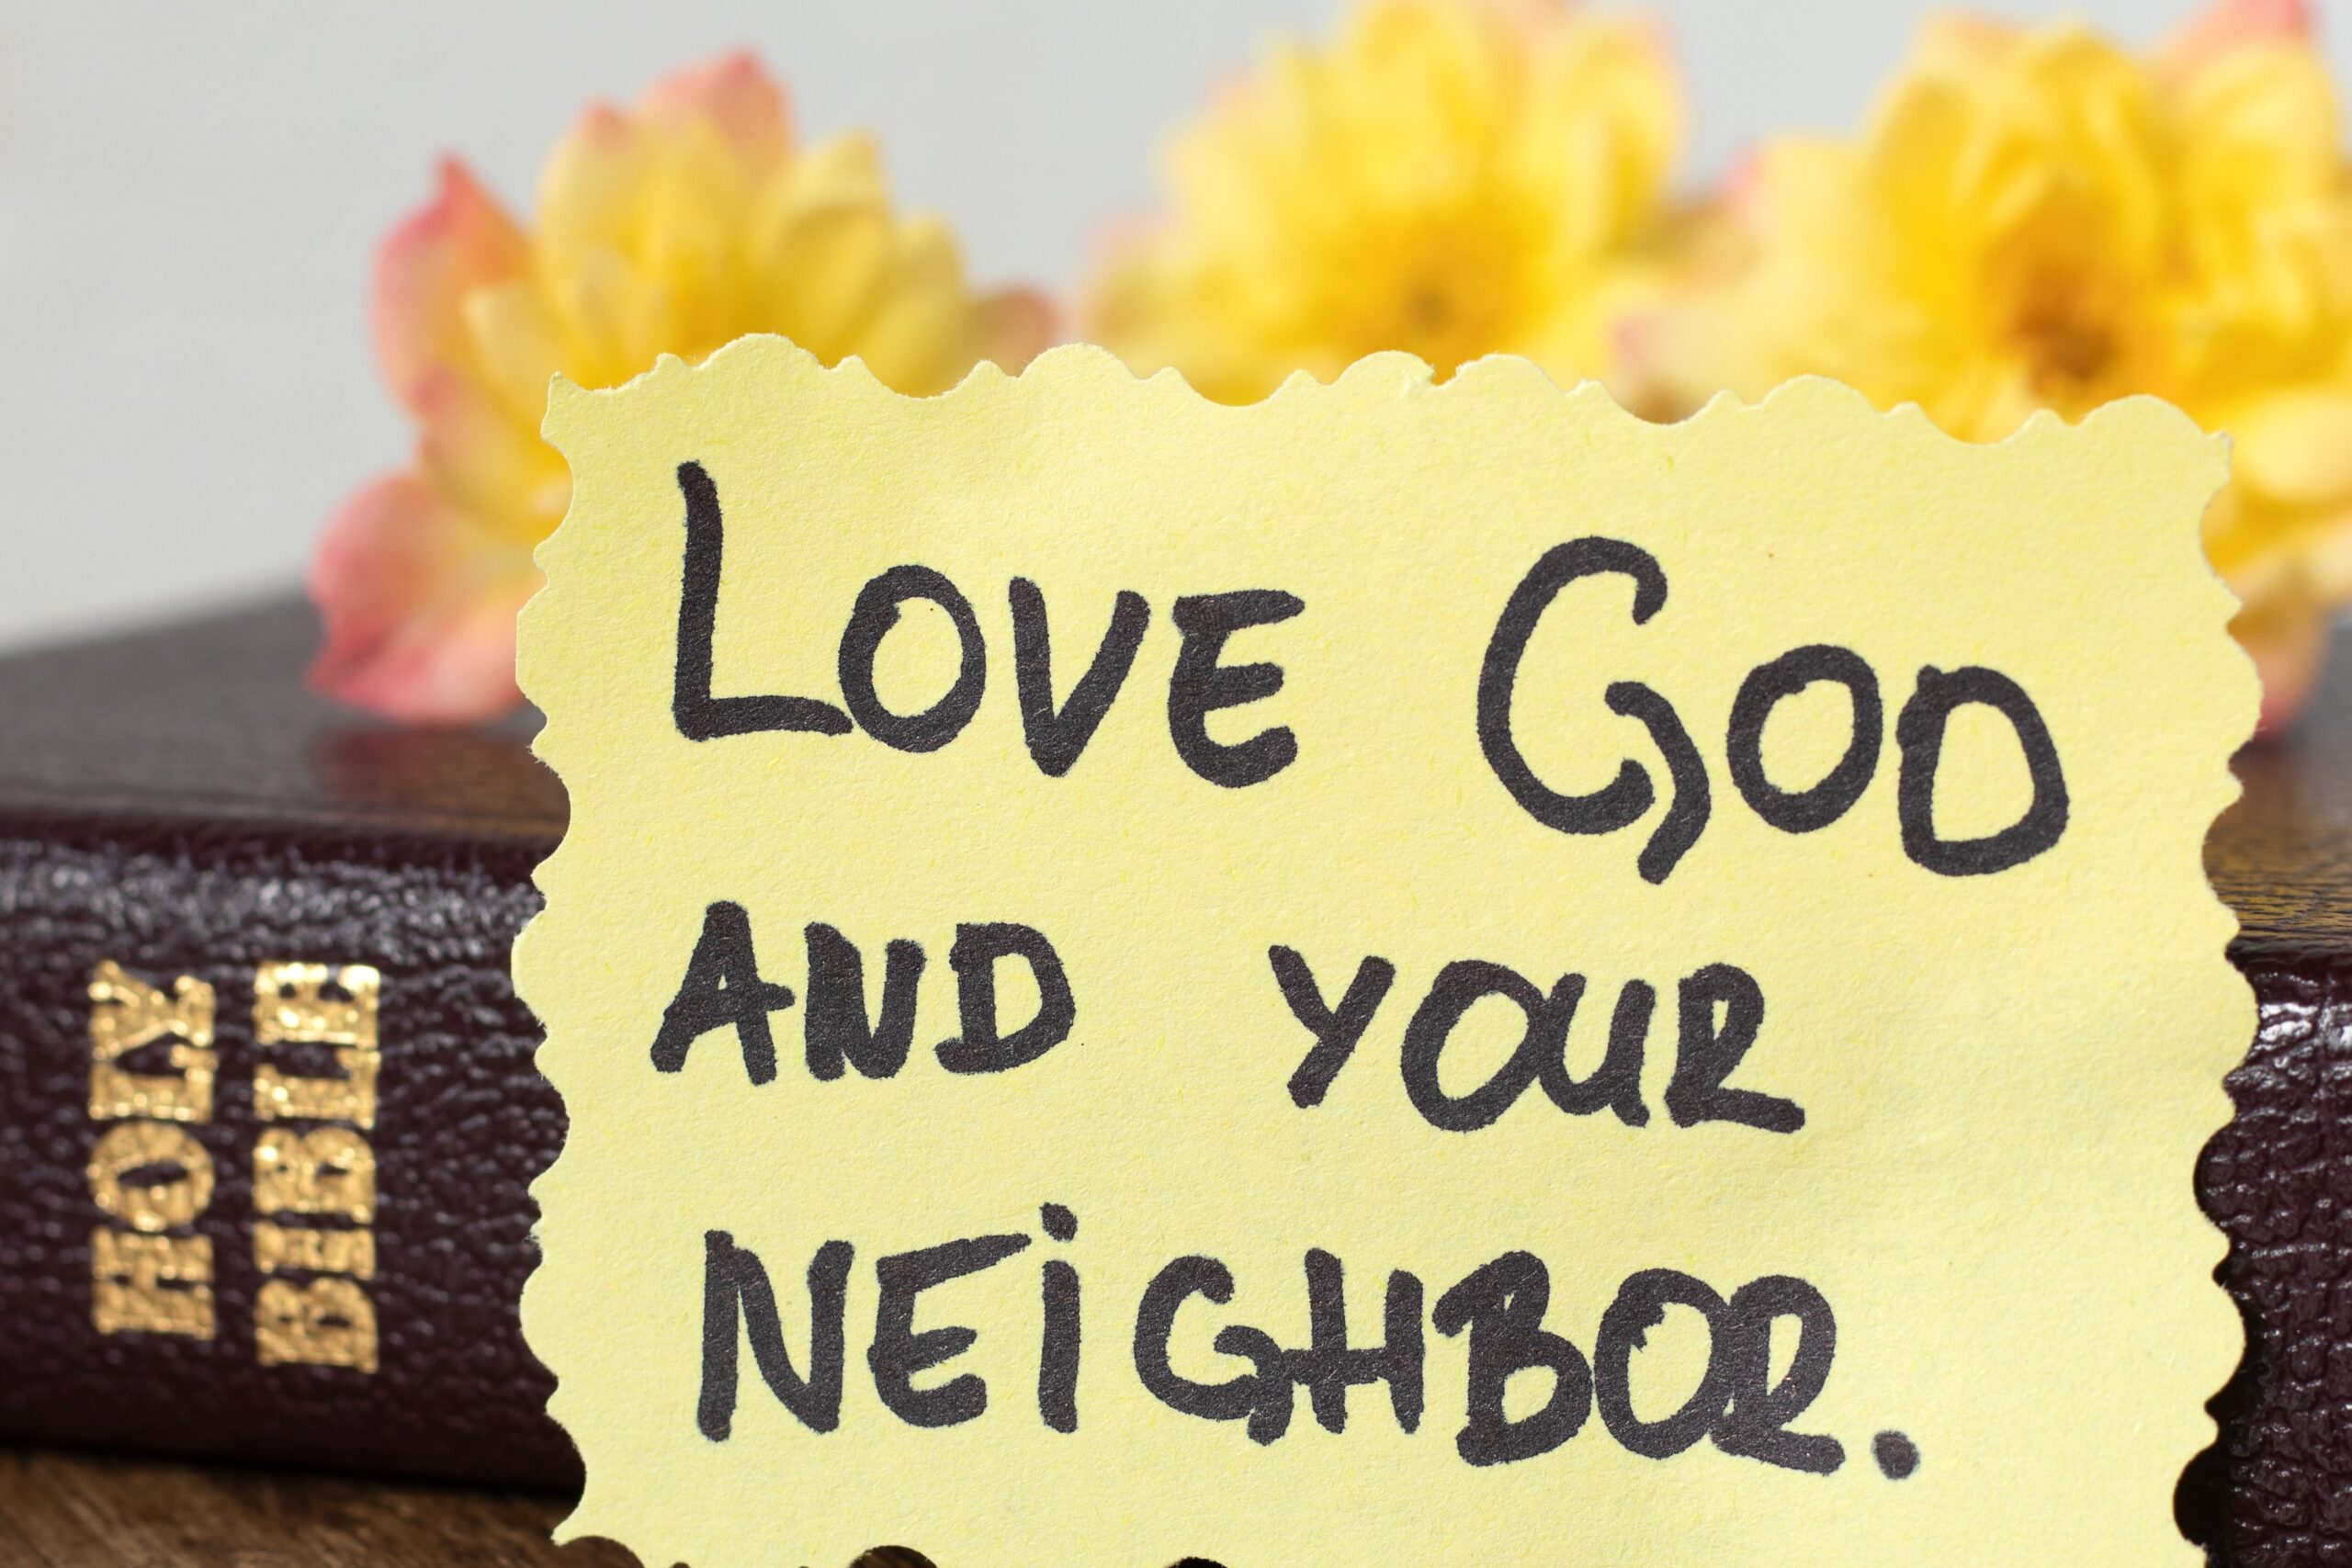 LOVE GOD
AND YOUR
NEiGHBOR.
HOLY
BIBLE